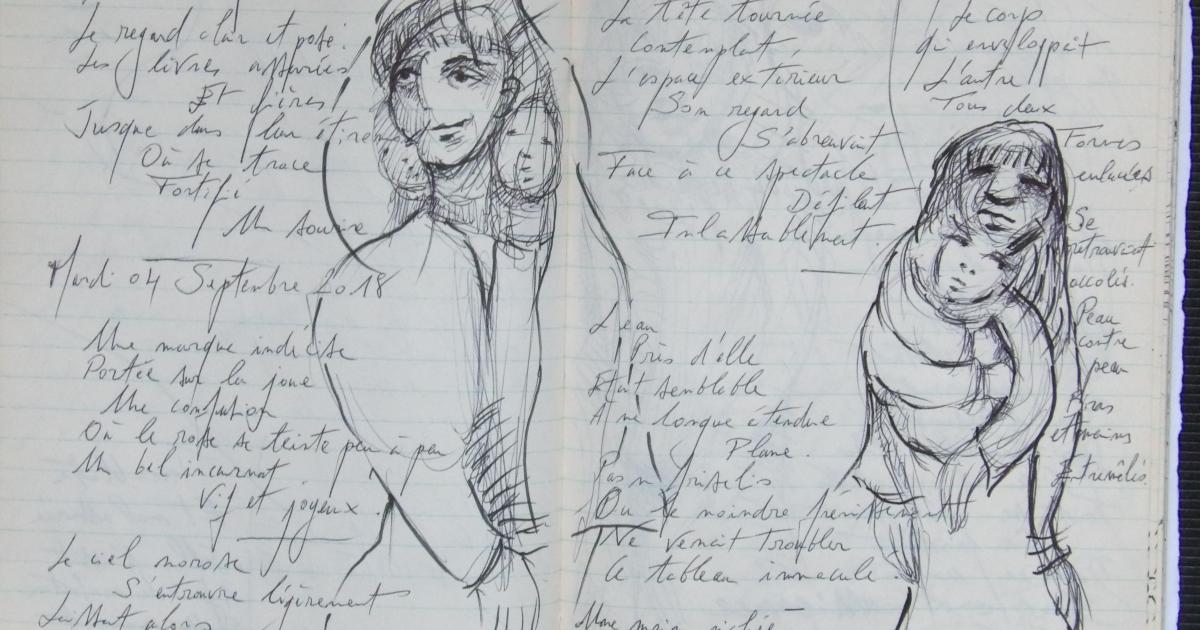 Le regard clair et posé.
Les livres
Et
Jusque dans leur
Où se trace
Fortifié
Un sourire
Mardi 04 Septembre 2018
Une marque indécise
Portée sur la joue
Une
Où le rose se teinte peu à peu
Un bel incarnat
Vif et joyeux.
Le ciel morose
S'entrouvre légèrement
alors
La tête tournée
Contemplait
L'espace extérieur
Son regard
S'abreuvait
Face à ce spectacle
Défilant
Inlassablement.
L'eau
Près d'elle
Etait semblable
A une longue étendue
Plane.
Pas un
Ou le moindre frémissement
Ne venait troubler
Ce tableau immaculé.
Une main
Le corps
qui enveloppait
L'autre
Tous deux
Formes
enlacées
Se
retrouvait
accolés.
Peau
contre
peau
Bras
et mains
Entremêlés.